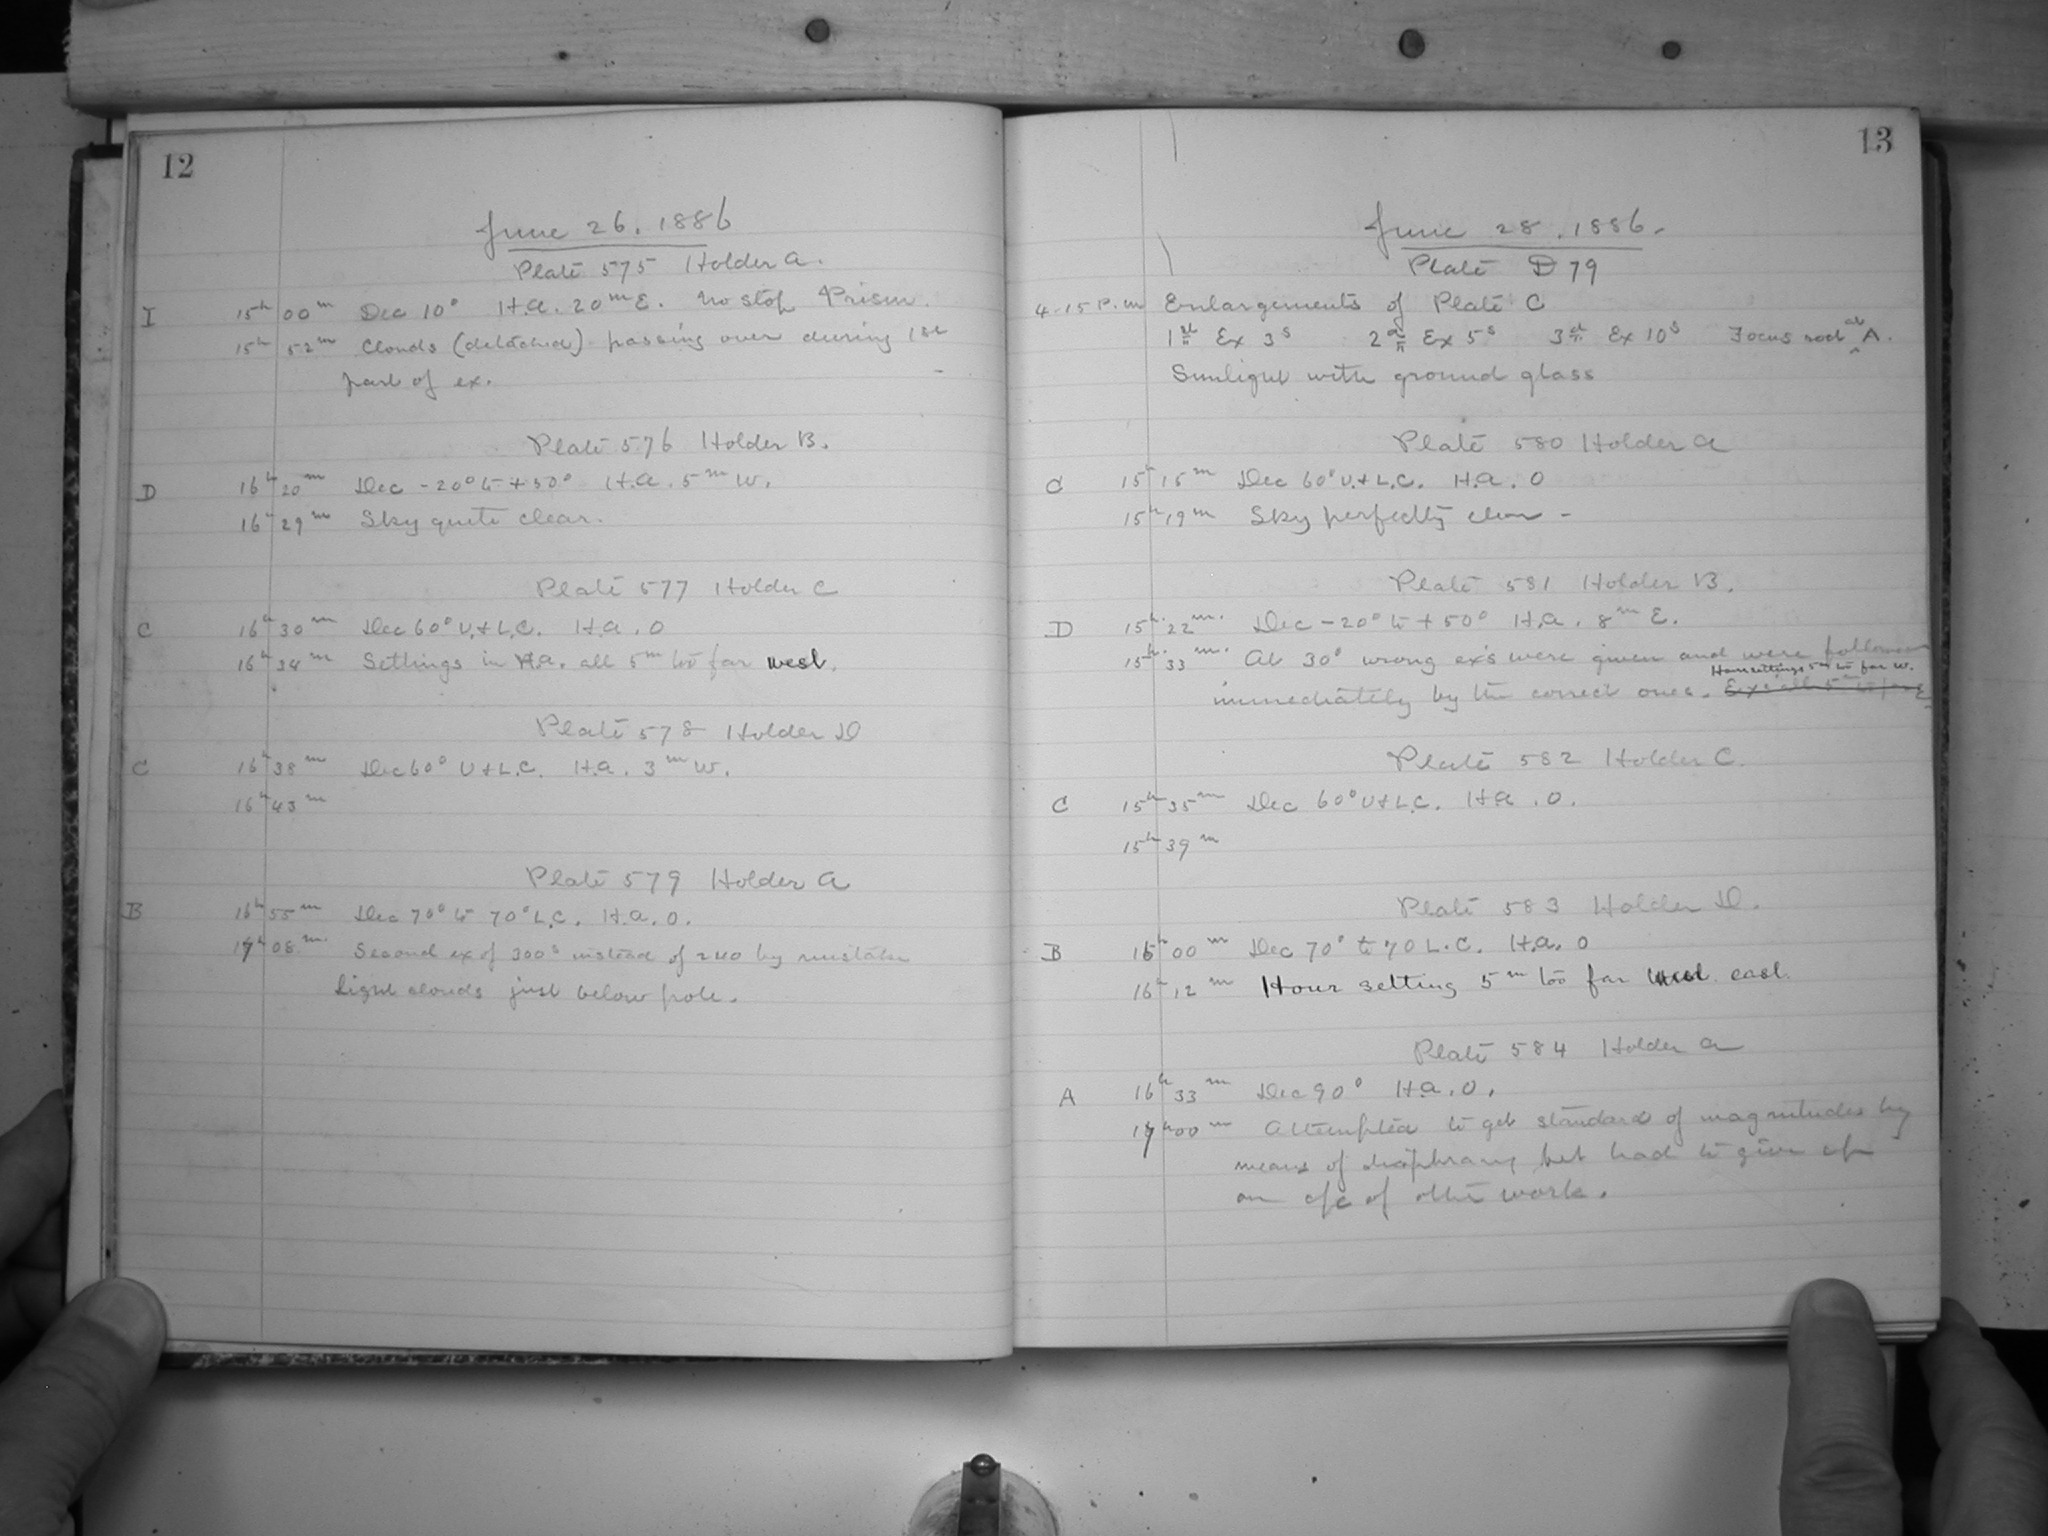 12
June 26. 1886
Plate 575 Holder A.
I 15h 00m Dec 10° H.A. 20m E. No stop Prism.
15h 52m Clouds (detached) passing over during 1st
part of ex.
Plate 576 Holder B.
D 16h 20m Dec -20° to +50° H.A. 5m W.
16h 29m Sky quite clear.
Plate 577 Holder C
C 16h 30m Dec 60° U.+L.C. H.A. 0
16h 34m Settings in H.A. all 5m too far west.
Plate 578 Holder D
C 16h 38m Dec 60° U+L.C. H.A. 3m W.
16h 43m
Plate 579 Holder A
B 16h 55m Dec 70° to 70° L.C. H.A. 0.
17h 08m Second ex of 300s instead of 240 by mistake
Light clouds just below pole.
13
June 28. 1886.
Plate D 79
4.15 P.m Enlargements of Plate C
1st Ex 3s 2d Ex 5s 3d Ex 10s Focus rod at A.
Sunlight with ground glass
Plate 580 Holder A
C 15h 15m Dec 60° U.+L.C. H.A. 0
15h 19m Sky perfectly clear -
Plate 581 Holder B.
D 15h 22m Dec -20° to +50° H.A. 8m E.
15h 33m At 30° wrong ex's were given and were followed
Hour settings 5m too far W.
immediately by the correct ones. Ex's all 5m too far E
Plate 582 Holder C.
C 15h 35m Dec 60° U+L.C. H.A. 0.
15h 39m
Plate 583 Holder D.
B 16h 00m Dec 70° to 70 L.C. H.A. 0
16h 12m Hour setting 5m too far west east.
Plate 584 Holder A
A 16h 33m Dec 90° H.A. 0.
17h 00m Attempted to get standard of magnitudes by
means of diaphragm, but had to give up
on a/c of other work.